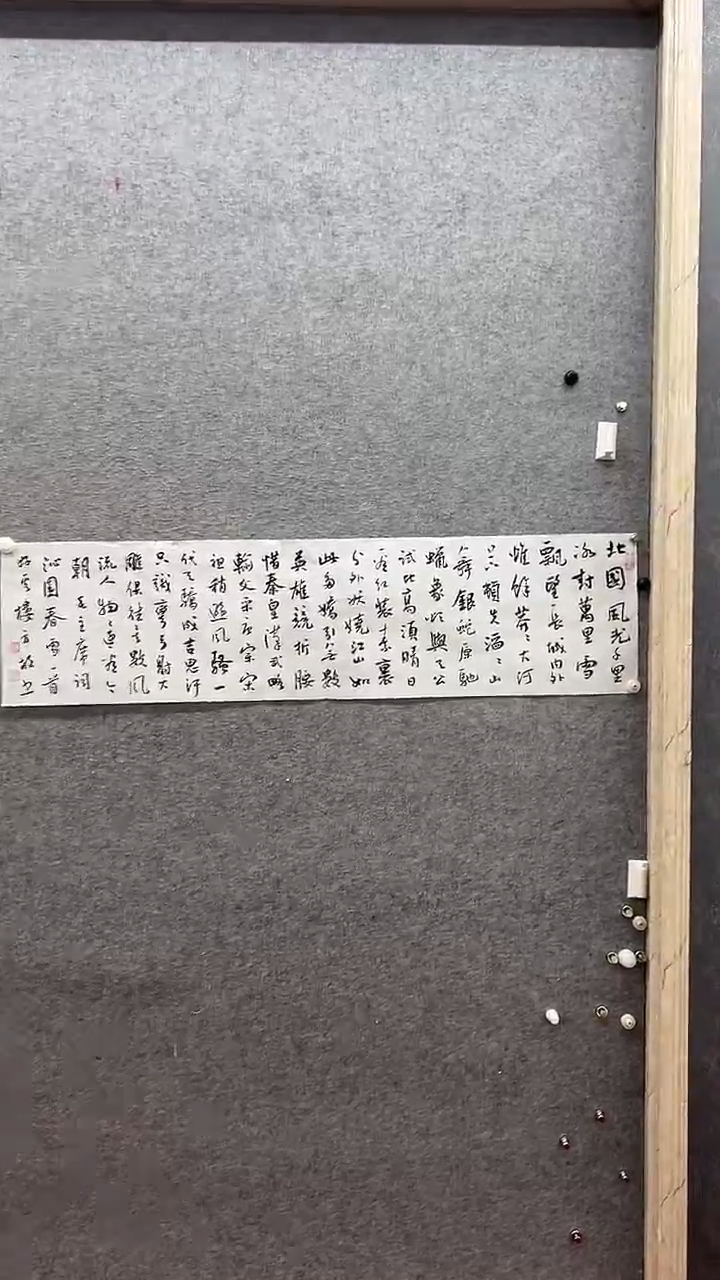 北國風光千里
冰封萬里雪
飄望長城內外
惟餘莽〻大河
上下頓失滔〻山
舞銀蛇原馳
蠟象欲與天公
試比高須晴日
看紅裝素裹
分外妖嬈江山如
此多嬌引無數
英雄競折腰
惜秦皇漢武略
輸文采唐宗宋
祖稍遜風騷一
代天驕成吉思汗
只識彎弓射大
雕俱往矣數風
流人物〻還看今
朝 毛主席詞
沁園春雪一首
雲樓